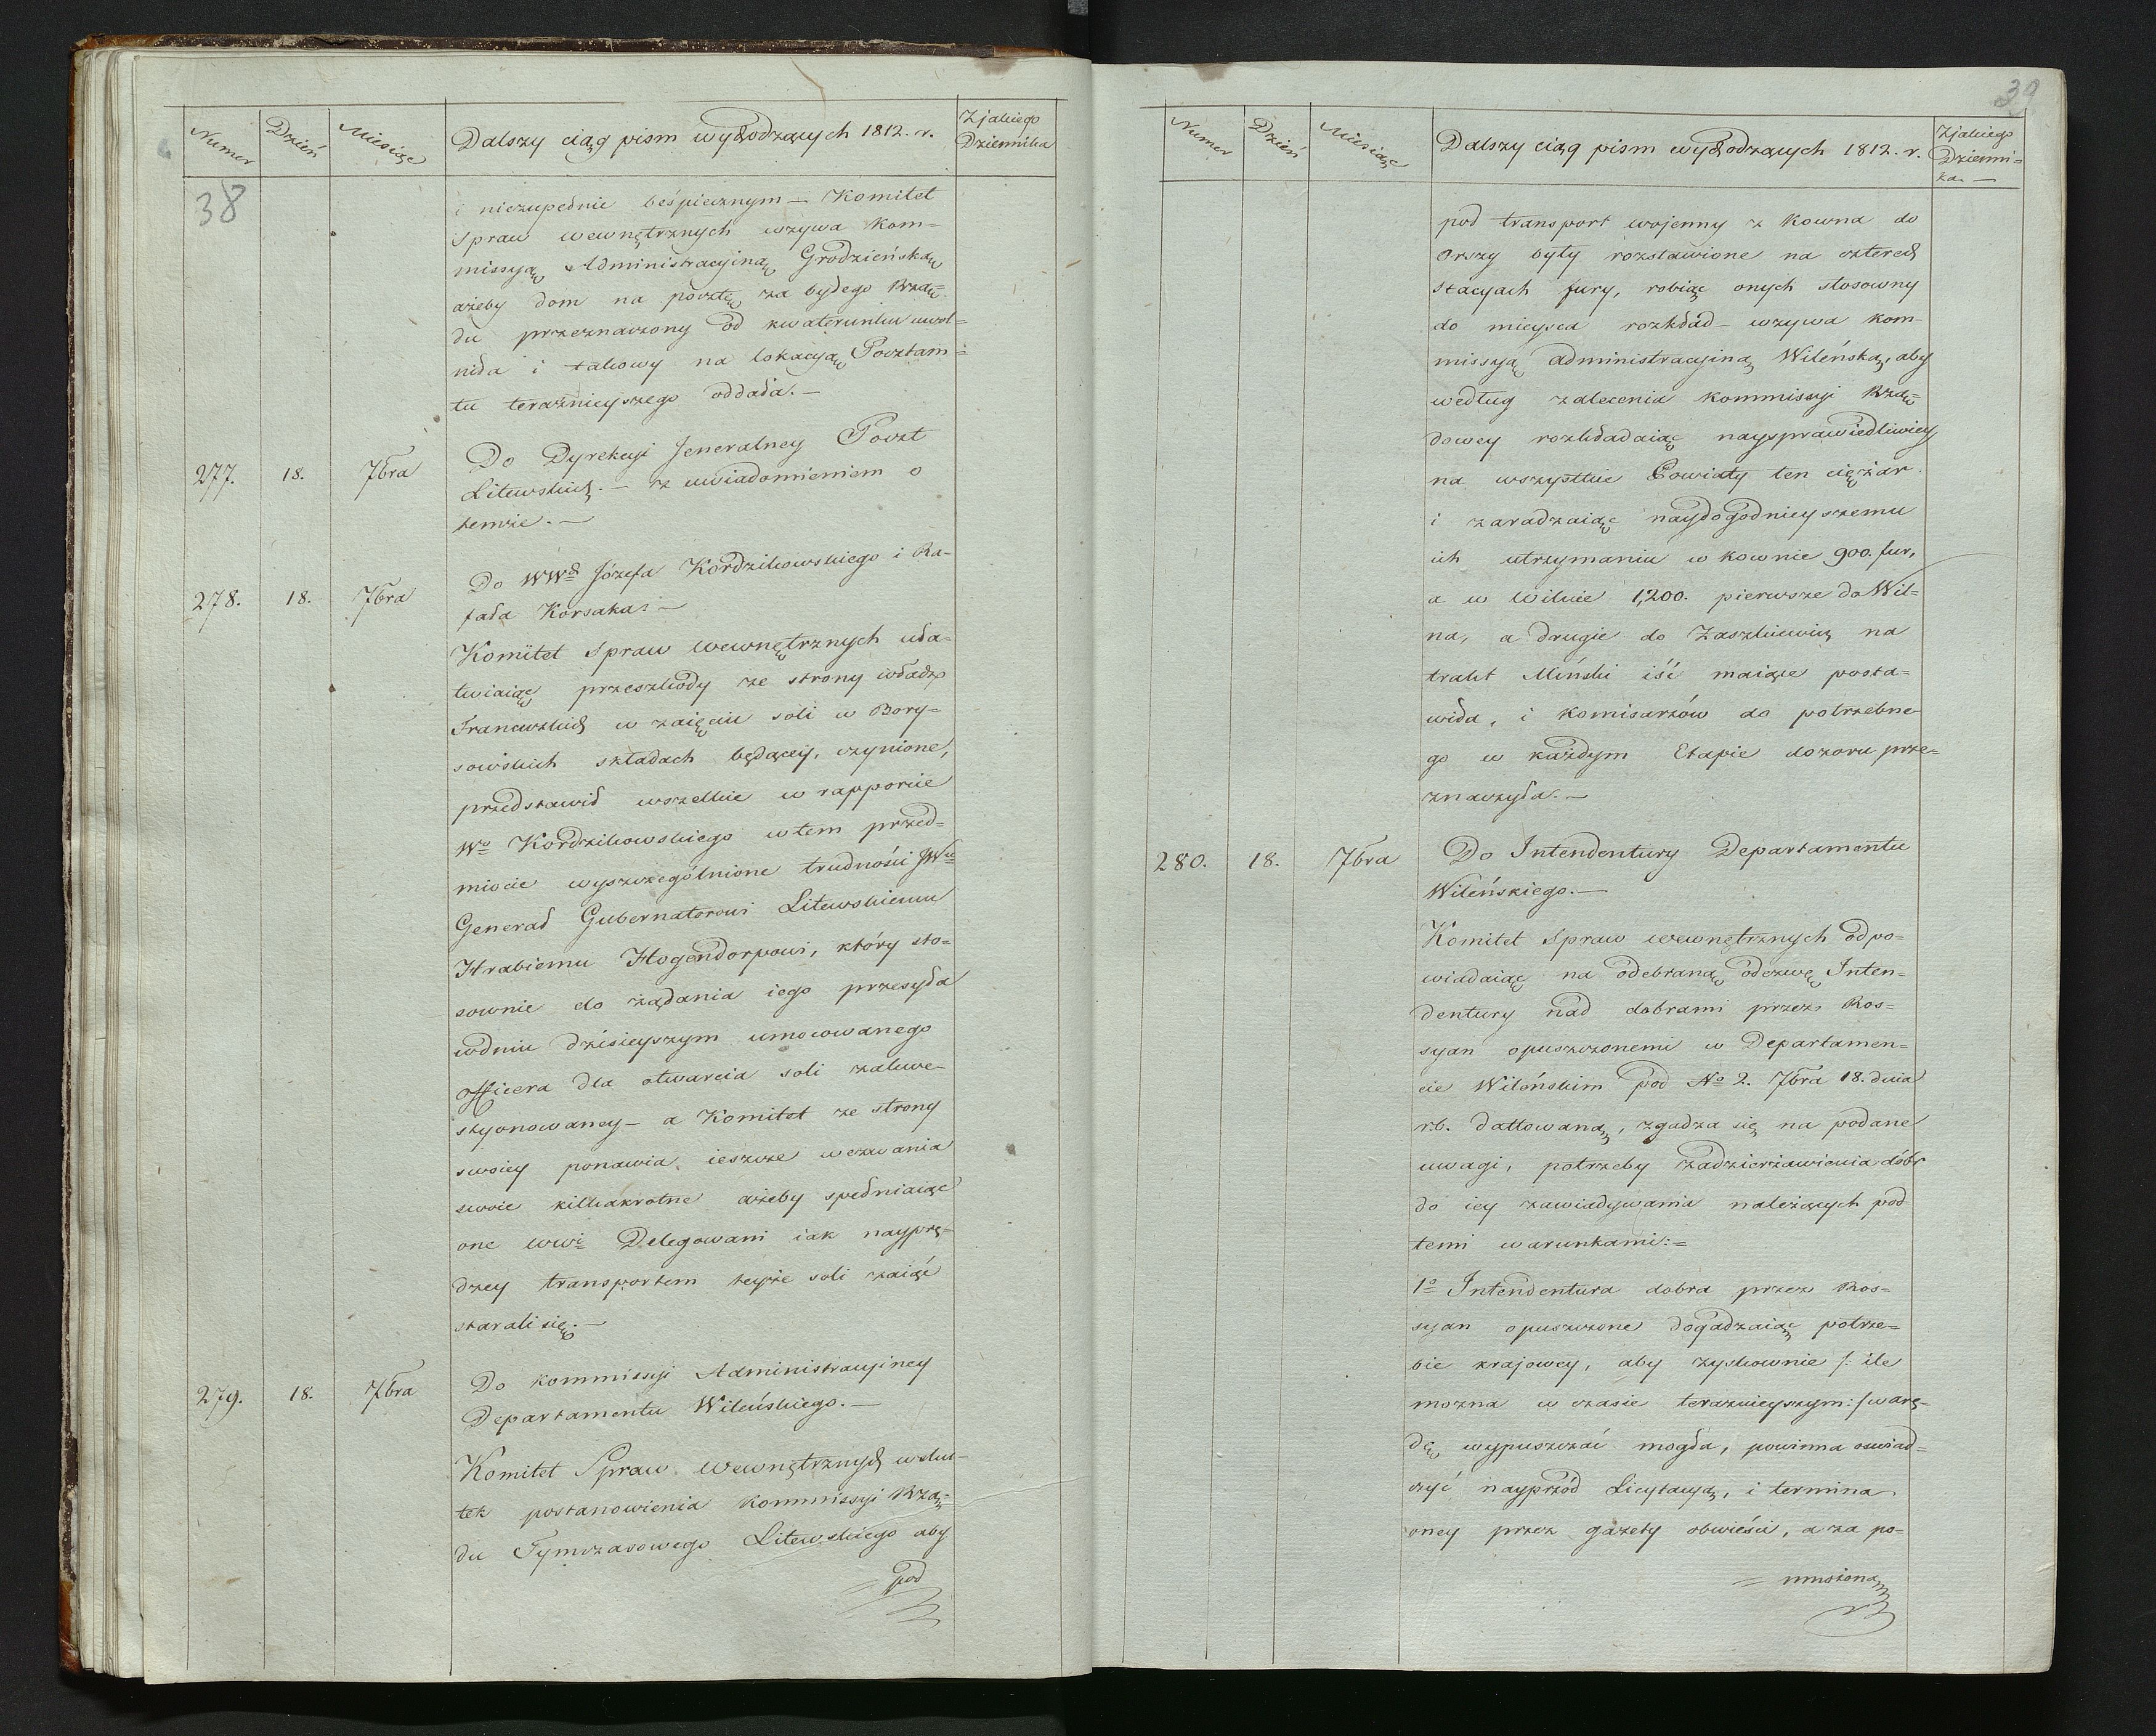 Numer
Dzień
Miesiąc
Dalszy ciąg pism wychodzących 1812. r.
Z jakiego
Dziennika
38
i niezupełnie beśpiecznym — Komitet
Spraw wewnętrznych wzywa Kom-
missyą Administracyiną Grodzieńską
ażeby dom na pocztę za byłego Rzą=
du przeznaczony od kwaterunku uwol=
niła i takowy na lokacyą Pocztam=
tu teraznieyszego oddała. —
277. 18. 7bra Do Dyrekcyi Jeneralney Poczt
Litewskich. — z uwiadomieniem o
temże. —
278. 18. 7bra Do WWch Józefa Kordzikowskiego i Ra-
fała Korsaka: —
Komitet Spraw wewnętrznych uła-
twiaiąc przeszkody ze strony władz
Francuzkich w zaięciu soli w Bory=
sowskich składach będącey, czynione,
przedstawił wszelkie w rapporcie
Wo Kordzikowskiego w tem przed-
miocie wyszczególnione trudności JWu
Generał Gubernatorowi Litewskiemu
Hrabiemu Hogendorpowi, który sto=
sownie do żądania iego przesyła
w dniu dzisieyszym umocowanego
officera dla otwarcia soli zakwe-
styonowaney — a Komitet ze strony
swoiey ponawia ieszcze wezwania
swoie kilkakrotne ażeby spełniaiąc
one WWi Delegowani iak nayprę-
dzey transportem teyże soli zaiąć
starali się. —
279. 18. 7bra Do Kommissyi Administracyiney
Departamentu Wileńskiego. —
Komitet Spraw Wewnętrznych w sku-
tek postanowienia Kommissyi Rzą=
du Tymczasowego Litewskiego aby
pod
39
Numer
Dzień
Miesiąc
Dalszy ciąg pism wychodzących 1812. r.
Z jakiego
Dzienni=
ka. —
pod transport wojenny z Kowna do
Orszy były rozstawione na czterech
stacyach fury, robiąc onych stosowny
do mieysca rozkład — wzywa Kom-
missyą administracyiną Wileńską, aby
według zalecenia Kommissyi Rzą=
dowey rozkładaiąc naysprawiedliwiey
na wszystkie Powiaty ten ciężar
i zaradzaiąc naydogodnieyszemu
ich utrzymaniu w Kownie 900. fur,
a w Wilnie 1,200. pierwsze do Wil=
na, a drugie do Zaszkiewicz na
trakt Miński iść maiące posta=
wiła, i Komisarzów do potrzebne-
go w każdym Etapie dozoru prze=
znaczyła. —
280. 18. 7bra Do Intendentury Departamentu
Wileńskiego. —
Komitet Spraw wewnętrznych odpo=
wiadaiąc na odebraną odezwę Inten=
dentury nad dobrami przez Ros=
syan opuszczonemi w Departamen=
cie Wileńskim pod No 2. 7bra 18. dnia
r.b. dattowaną, zgadza się na podane
uwagi, potrzeby zadzierżawienia dóbr
do iey zawiadywania należących pod
temi warunkami: =
1o Intendentura dobra przez Ros=
syan opuszczone dogadzaiąc potrze=
bie krajowey, aby zyskownie /: ile
można w czasie teraznieyszym :/ w arę-
dę wypuszczać mogła, powinna oświad=
czyć nayprzód Licytacyą, i termina
oney przez gazety obwieścić, a za po-
= mnożoną